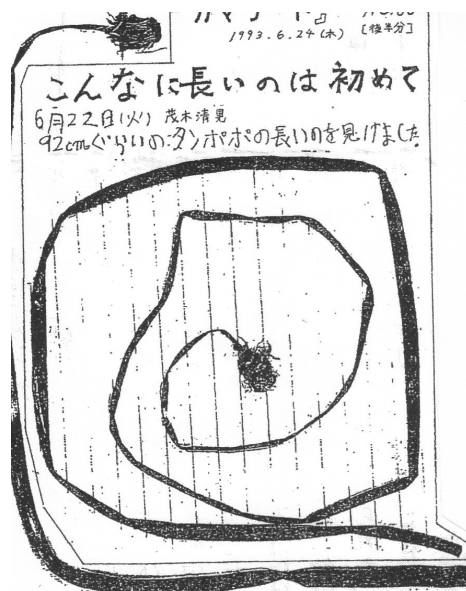 1993.6.24(木) [種半分]
こんなに長いのは初めて
6月22日(火) 茂木清晃
92cmぐらいのタンポポの長いのを見つけました